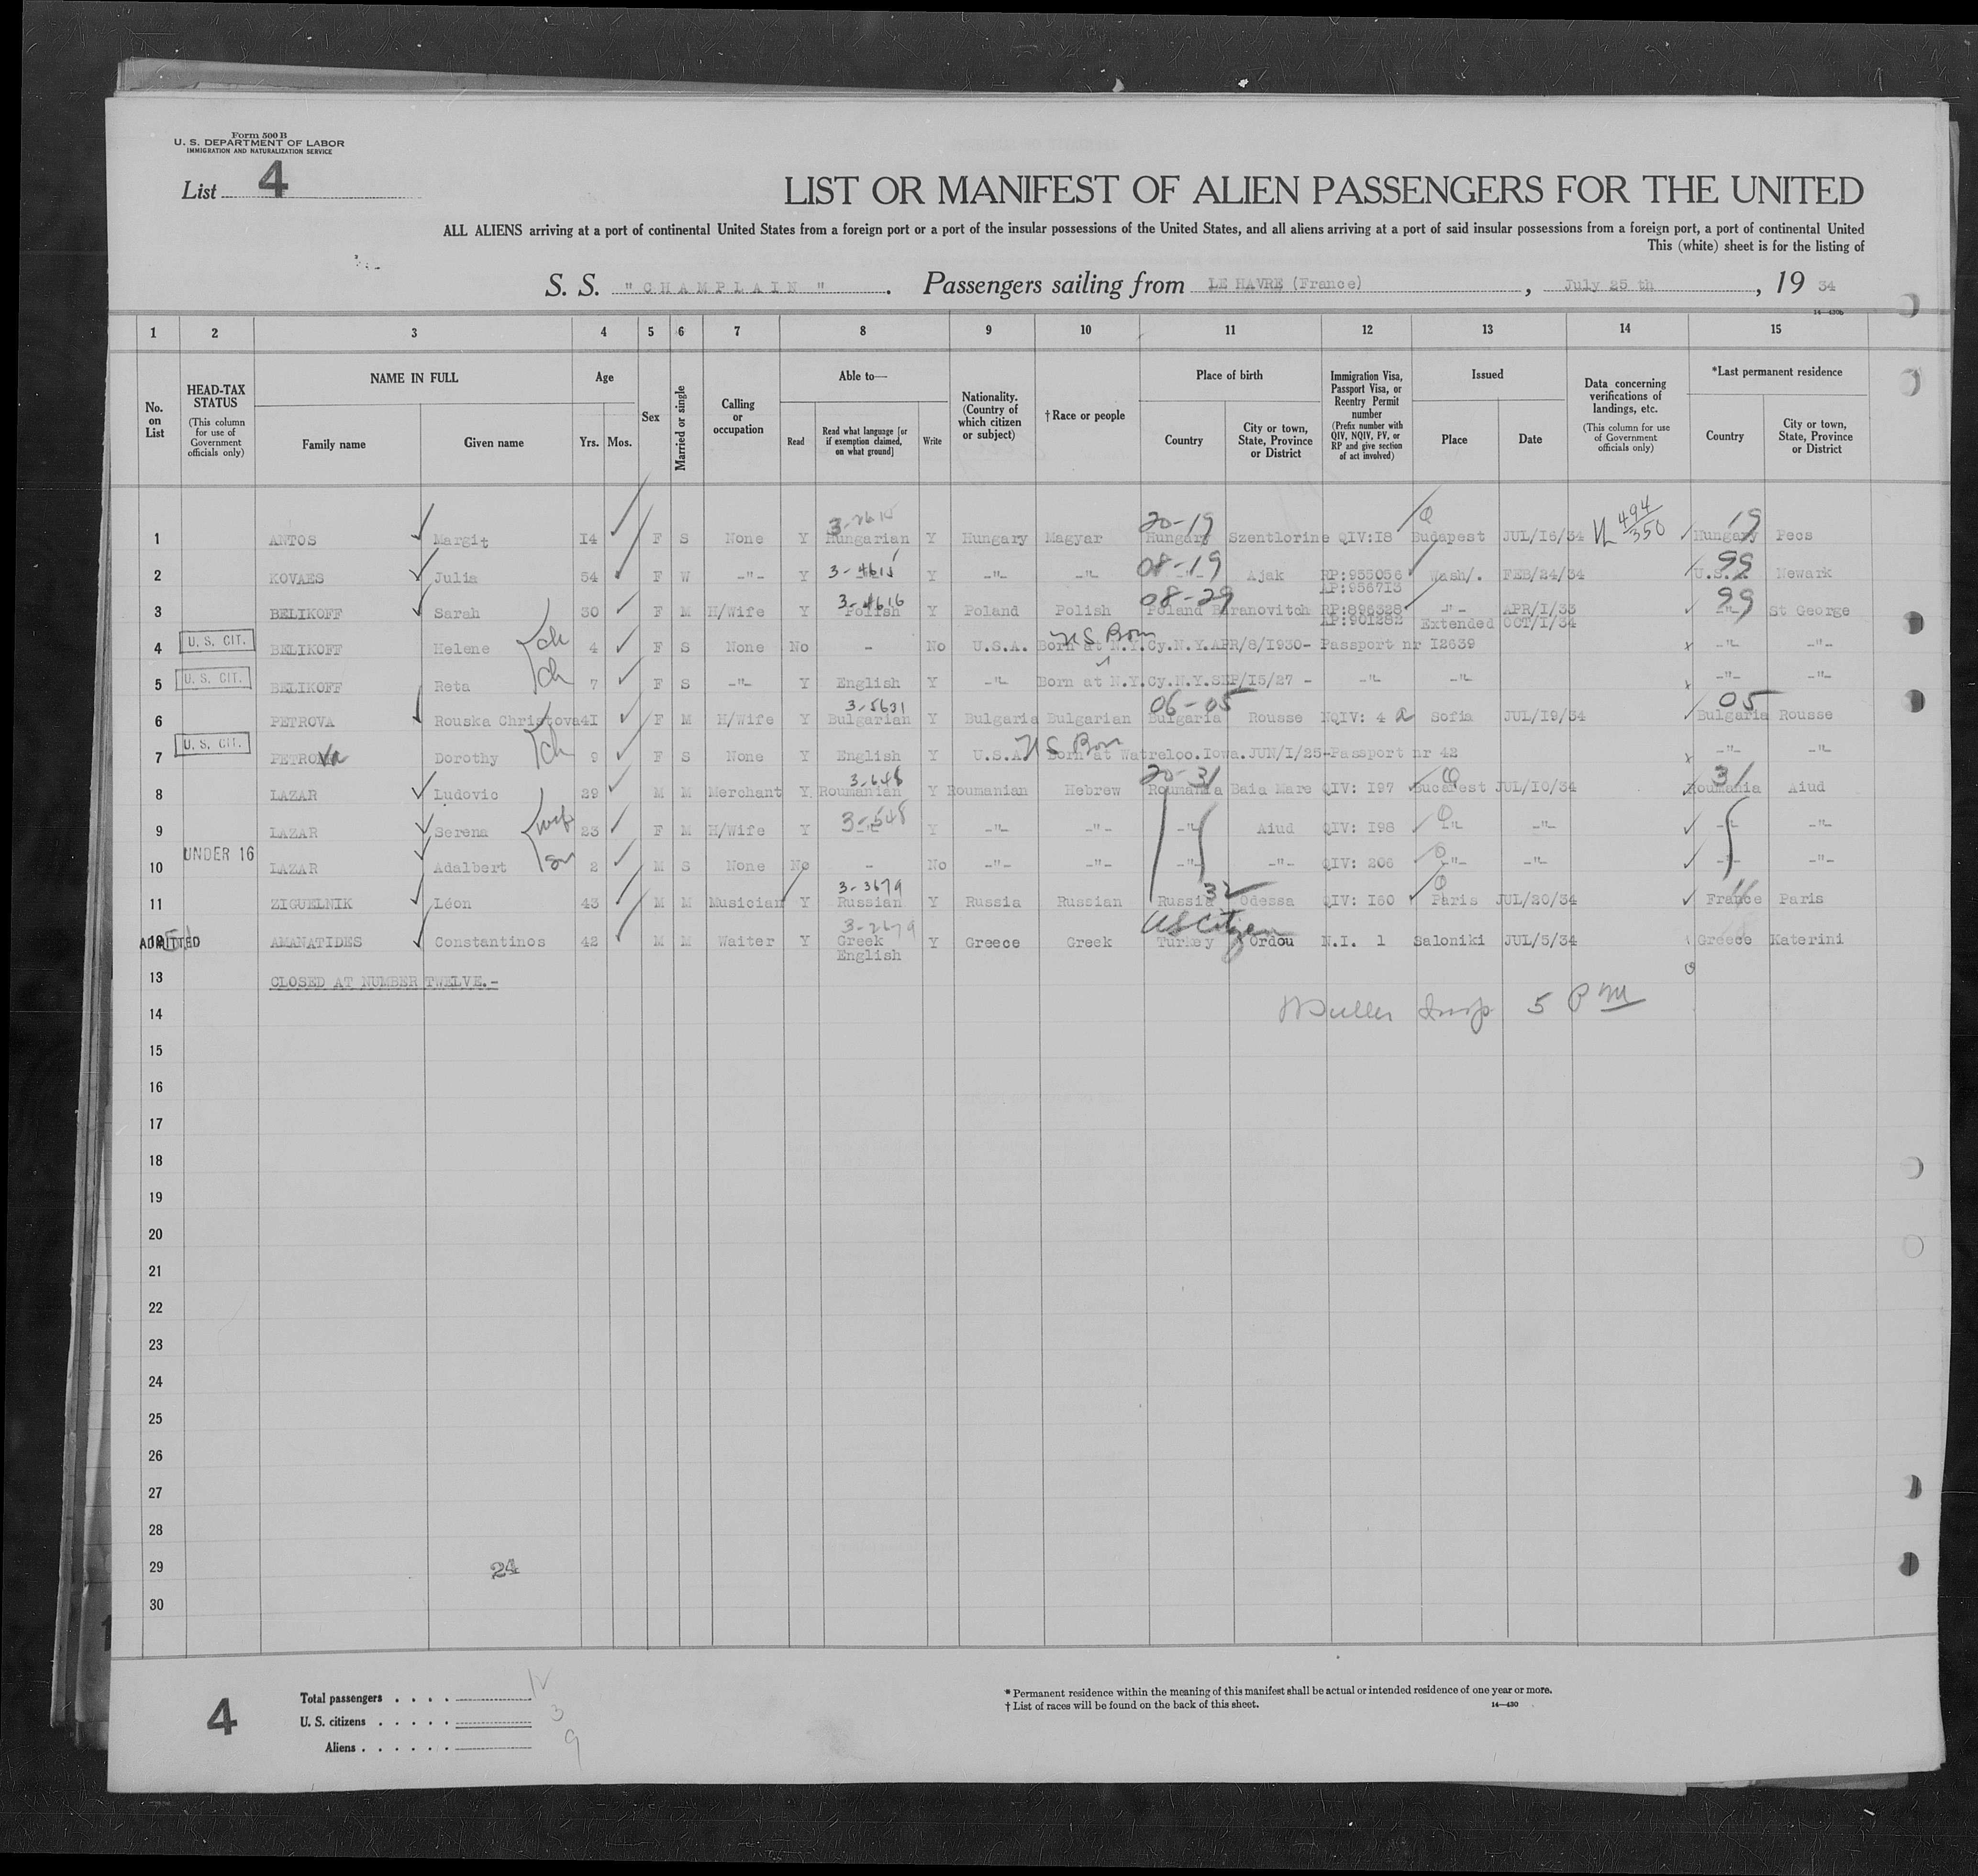 Form 500 B
U. S. DEPARTMENT OF LABOR
IMMIGRATION AND NATURALIZATION SERVICE
List 4
LIST OR MANIFEST OF ALIEN PASSENGERS FOR THE UNITED
ALL ALIENS arriving at a port of continental United States from a foreign port or a port of the insular possessions of the United States, and all aliens arriving at a port of said insular possessions from a foreign port, a port of continental United
This (white) sheet is for the listing of
S. S. "CHAMPLAIN". Passengers sailing from LE HAVRE (France), July 25 th, 19 34
14—430b
1 2 3 4 5 6 7 8 9 10 11 12 13 14 15
No. on List
HEAD-TAX STATUS (This column for use of Government officials only)
NAME IN FULL Family name Given name
Age Yrs. Mos.
Sex
Married or single
Calling or occupation
Able to— Read Read what language [or if exemption claimed, on what ground] Write
Nationality. (Country of which citizen or subject)
†Race or people
Place of birth Country City or town, State, Province or District
Immigration Visa, Passport Visa, or Reentry Permit number (Prefix number with QIV, NQIV, PV, or RP and give section of act involved)
Issued Place Date
Data concerning verifications of landings, etc. (This column for use of Government officials only)
*Last permanent residence Country City or town, State, Province or District
3-2615 20-19 494/350 19
1 ANTOS Margit I4 F S None Y Hungarian Y Hungary Magyar Hungary Szentlorine QIV:I8 Budapest JUL/I6/34 Hungary Pecs
3-4615 08-19 99
2 KOVAES Julia 54 F W -"- Y Y -"- -"- -"- Ajak RP:955056 Wash/. FEB/24/34 U.S.A. Newark
RP:956713
3-4616 08-29 99
3 BELIKOFF Sarah 30 F M H/Wife Y Polish Y Poland Polish Poland Baranovitch RP:896328 -"- APR/I/33 -"- St George
RP:901282 Extended OCT/I/34
U. S. CIT. ch US Born
4 BELIKOFF Helene 4 F S None No - No U.S.A. Born at N.Y.Cy.N.Y.APR/8/I930- Passport nr I2639 -"- -"-
U. S. CIT. ch
5 BELIKOFF Reta 7 F S -"- Y English Y -"- Born at N.Y.Cy.N.Y.SEP/I5/27 - -"- -"- -"- -"-
3-5631 06-05 05
6 PETROVA Rouska Christova 4I F M H/Wife Y Bulgarian Y Bulgaria Bulgarian Bulgaria Rousse NQIV: 4 a Sofia JUL/I9/34 Bulgaria Rousse
U. S. CIT. ch US Born
7 PETROVA Dorothy 9 F S None Y English Y U.S.A. Born at Watreloo.Iowa.JUN/I/25-Passport nr 42 -"- -"-
3-648 20-31 31
8 LAZAR Ludovic 29 M M Merchant Y Roumanian Y Roumanian Hebrew Roumania Baia Mare QIV: I97 Bucarest JUL/I0/34 Roumania Aiud
wife 3-648
9 LAZAR Serena 23 F M H/Wife Y -"- Y -"- -"- -"- Aiud QIV: I98 -"- -"- -"- -"-
UNDER 16 son
10 LAZAR Adalbert 2 M S None No - No -"- -"- -"- -"- QIV: 206 -"- -"- -"- -"-
3-3679 32
11 ZIGUELNIK Léon 43 M M Musician Y Russian Y Russia Russian Russia Odessa QIV: I60 Paris JUL/20/34 France Paris
3-2679 US Citizen
12 ADMITTED AMANATIDES Constantinos 42 M M Waiter Y Greek Y Greece Greek Turkey Ordou N.I. 1 Saloniki JUL/5/34 Greece Katerini
English
13 CLOSED AT NUMBER TWELVE.-
14 Insp 5 PM
15
16
17
18
19
20
21
22
23
24
25
26
27
28
29 24
30
4
Total passengers . . . .
U. S. citizens . . . . . 3
Aliens . . . . . . 9
* Permanent residence within the meaning of this manifest shall be actual or intended residence of one year or more.
† List of races will be found on the back of this sheet. 14—430